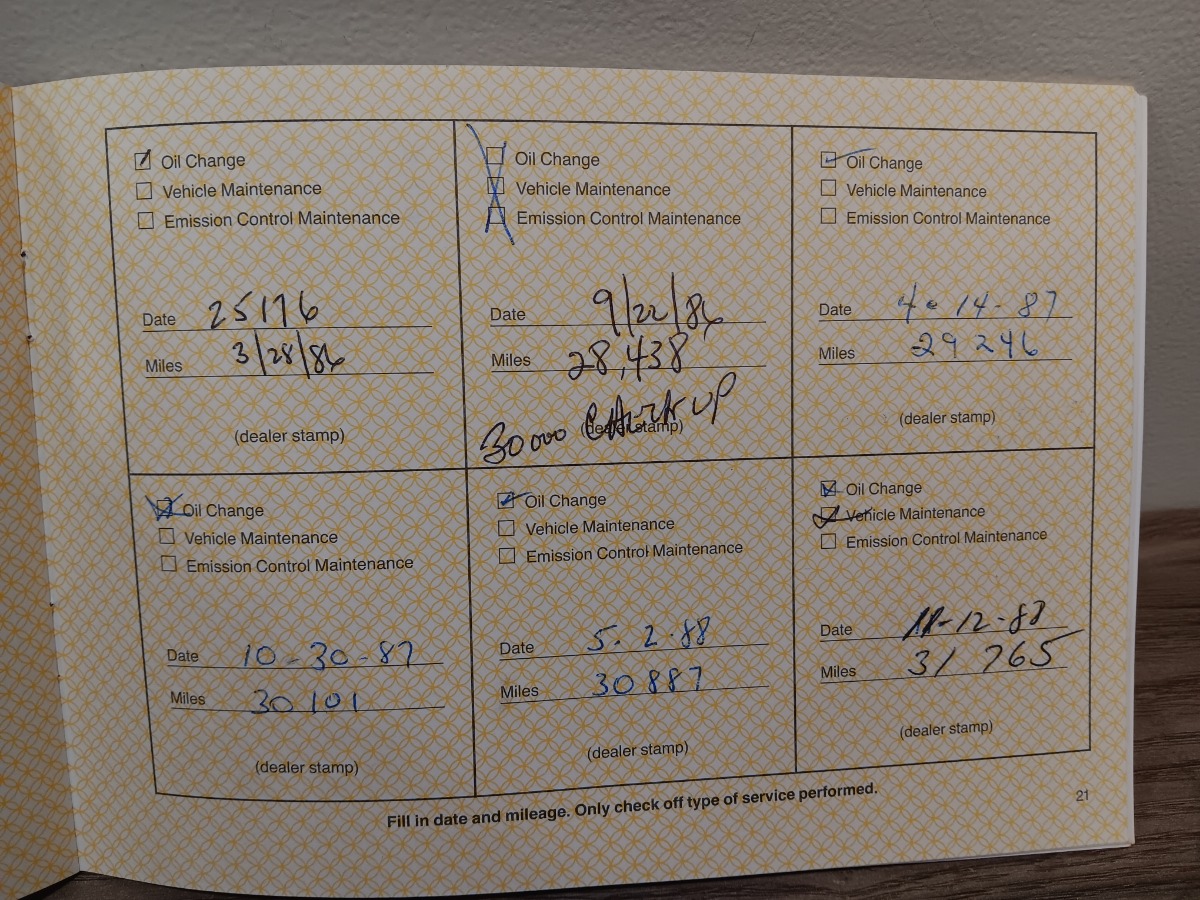 Oil Change
Vehicle Maintenance
Emission Control Maintenance
Date 25176
Miles 3/28/86
(dealer stamp)
Oil Change
Vehicle Maintenance
Emission Control Maintenance
Date 9/22/86
Miles 28,438
30000 CHECK UP
(dealer stamp)
Oil Change
Vehicle Maintenance
Emission Control Maintenance
Date 4-14-87
Miles 29246
(dealer stamp)
Oil Change
Vehicle Maintenance
Emission Control Maintenance
Date 10-30-87
Miles 30101
(dealer stamp)
Oil Change
Vehicle Maintenance
Emission Control Maintenance
Date 5.2.88
Miles 30887
(dealer stamp)
Oil Change
Vehicle Maintenance
Emission Control Maintenance
Date
Miles 31765
(dealer stamp)
Fill in date and mileage. Only check off type of service performed.
21